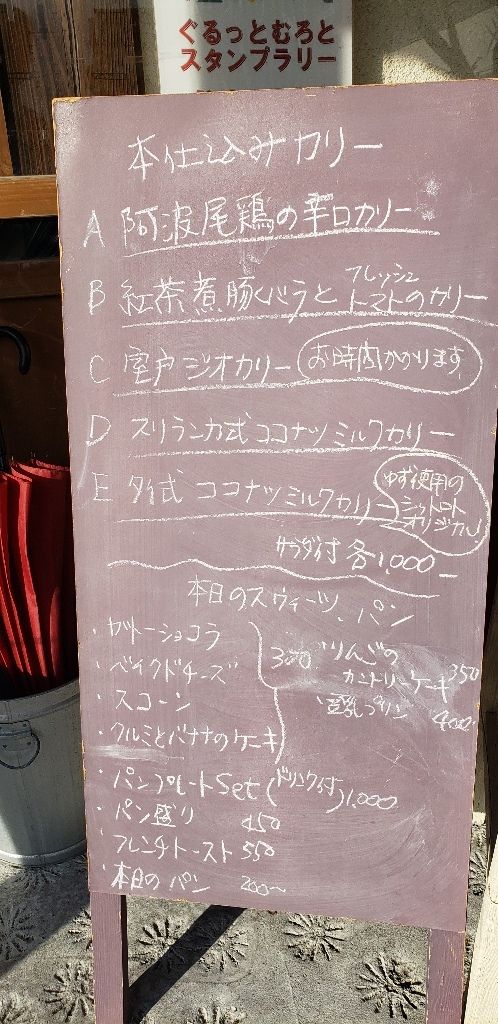 ぐるっとむろと
スタンプラリー
本仕込みカリー
A 阿波尾鶏の辛口カリー
B 紅茶煮豚バラとフレッシュトマトのカリー
C 室戸ジオカリー お時間かかります
D スリランカ式ココナッツミルクカリー
E タイ式 ココナッツミルクカリー
ゆず使用の
シットロト
オリジナル
サラダ付 各1,000
本日のスウィーツ、パン
・ガトーショコラ
・ベイクドチーズ
・スコーン
・クルミとバナナのケーキ
300
・りんごの
カントリーケーキ 350
・豆乳プリン 400
・パンプレートSet (ドリンク付) 1,000
・パン盛り 450
・フレンチトースト 550
・本日のパン 200〜